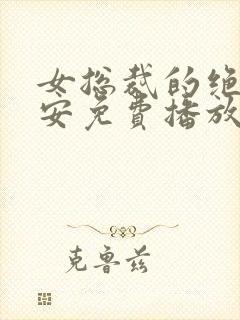 女总裁的绝
安免費播放
克鲁兹